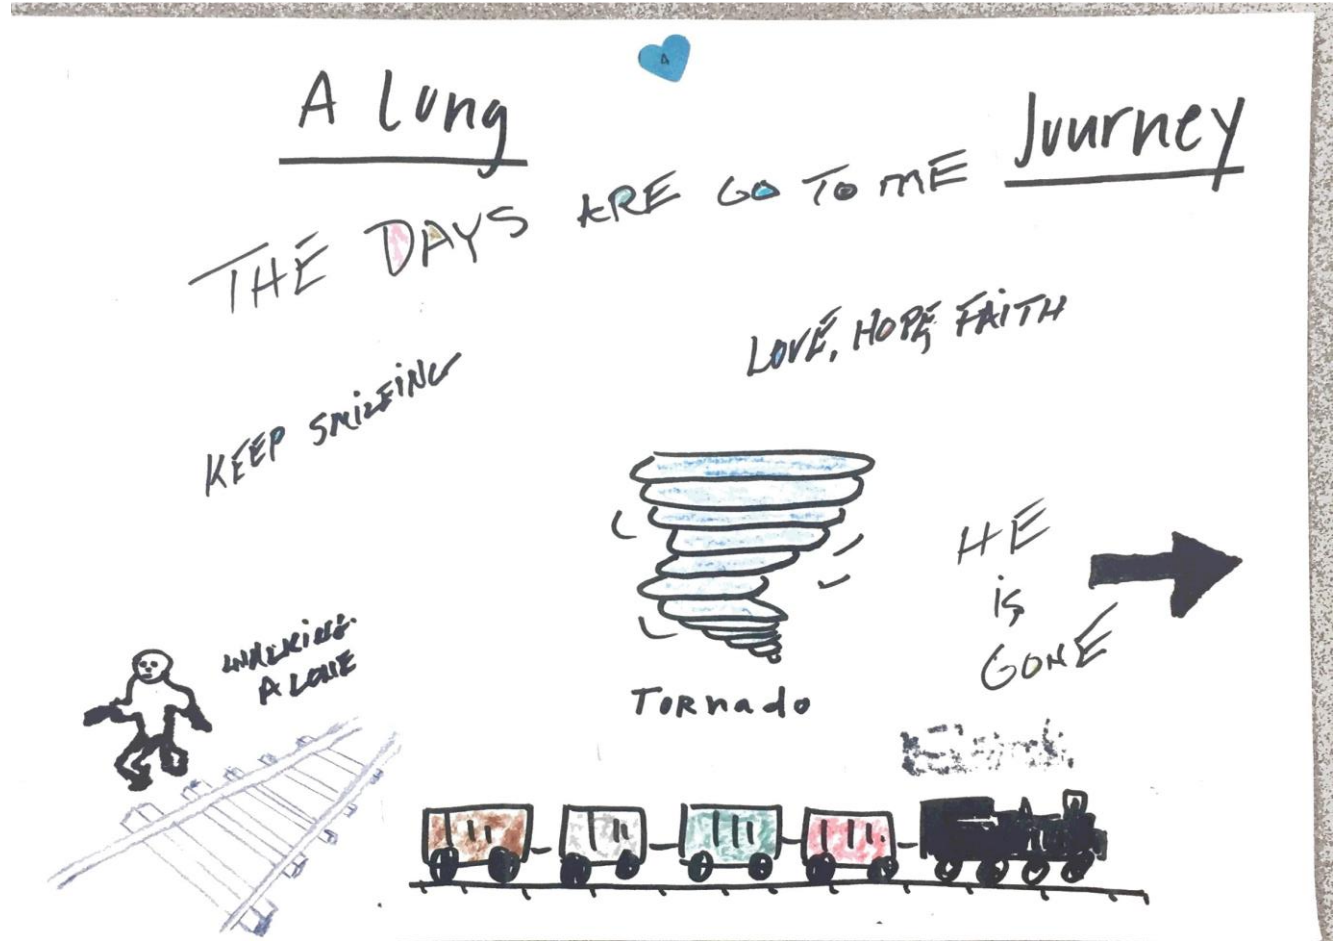 A Lung Juurney
THE DAYS ARE GO TO ME
LOVE, HOPE, FAITH
KEEP SMILEING
HE
is
GONE
WALKING
ALONE
TORnado